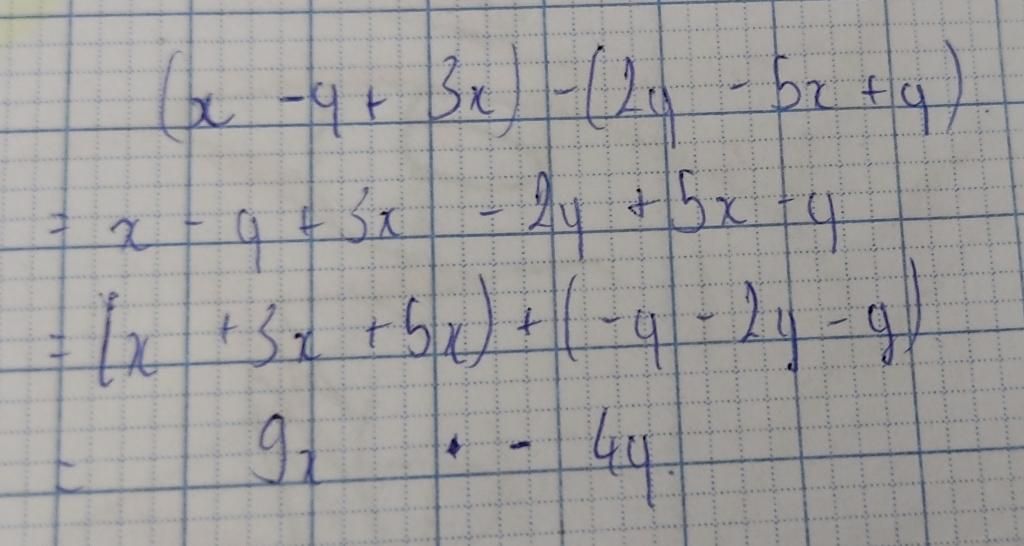 (x - y + 3x) - (2y - 5x + y)
= x - y + 3x - 2y + 5x - y
= (x + 3x + 5x) + (-y - 2y - y)
= 9x · - 4y.